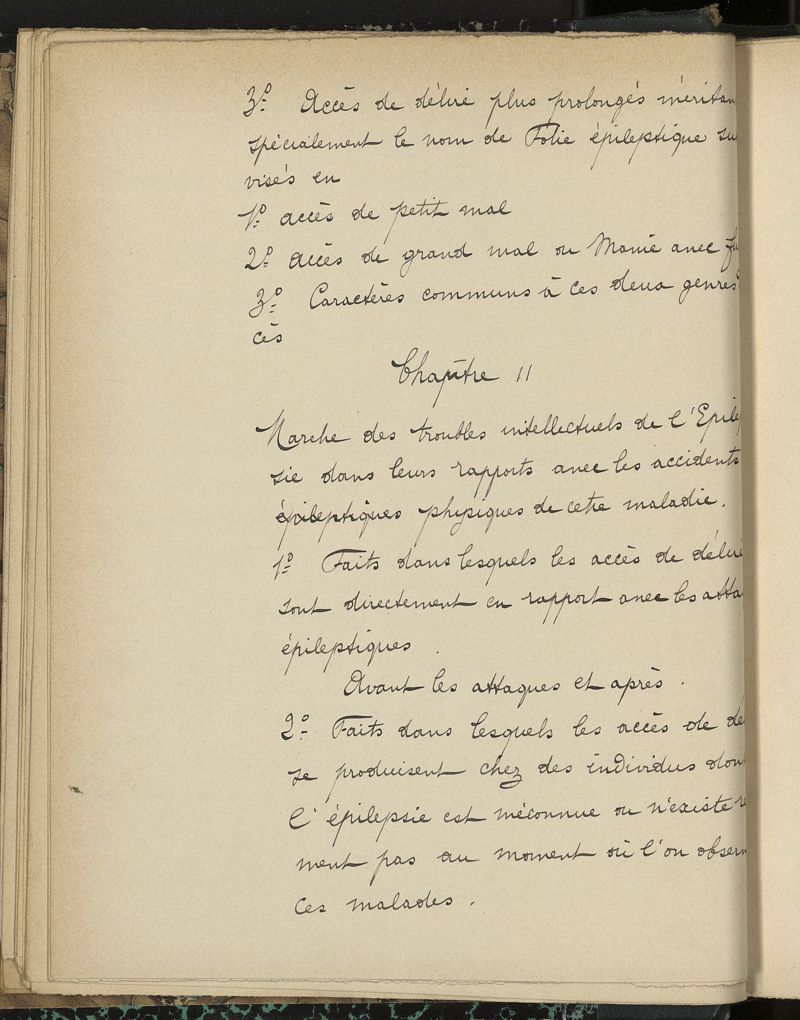 3º Accès de délire plus prolongés méritan
spécialement le nom de Folie épileptique su
visés en
1º accès de petit mal
2º accès de grand mal ou Manie avec fu
3º Caractères communs à ces deux genres
cès
Chapitre 11
Marche des troubles intellectuels de l'Epilep
sie dans leurs rapports avec les accidents
épileptiques physiques de cette maladie.
1º Faits dans lesquels les accès de délire
sont directement en rapport avec les atta
épileptiques .
Avant les attaques et après .
2º Faits dans lesquels les accès de dé
se produisent chez des individus dont
l'épilepsie est méconnue ou n'existe re
ment pas au moment où l'on observ
ces malades .